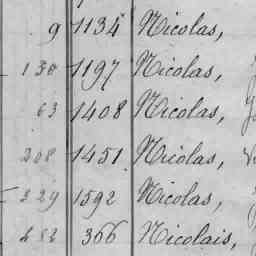 9 1134 Nicolas,
130 1197 Nicolas,
63 1408 Nicolas,
208 1451 Nicolas,
229 1592 Nicolas,
366 Nicolais,